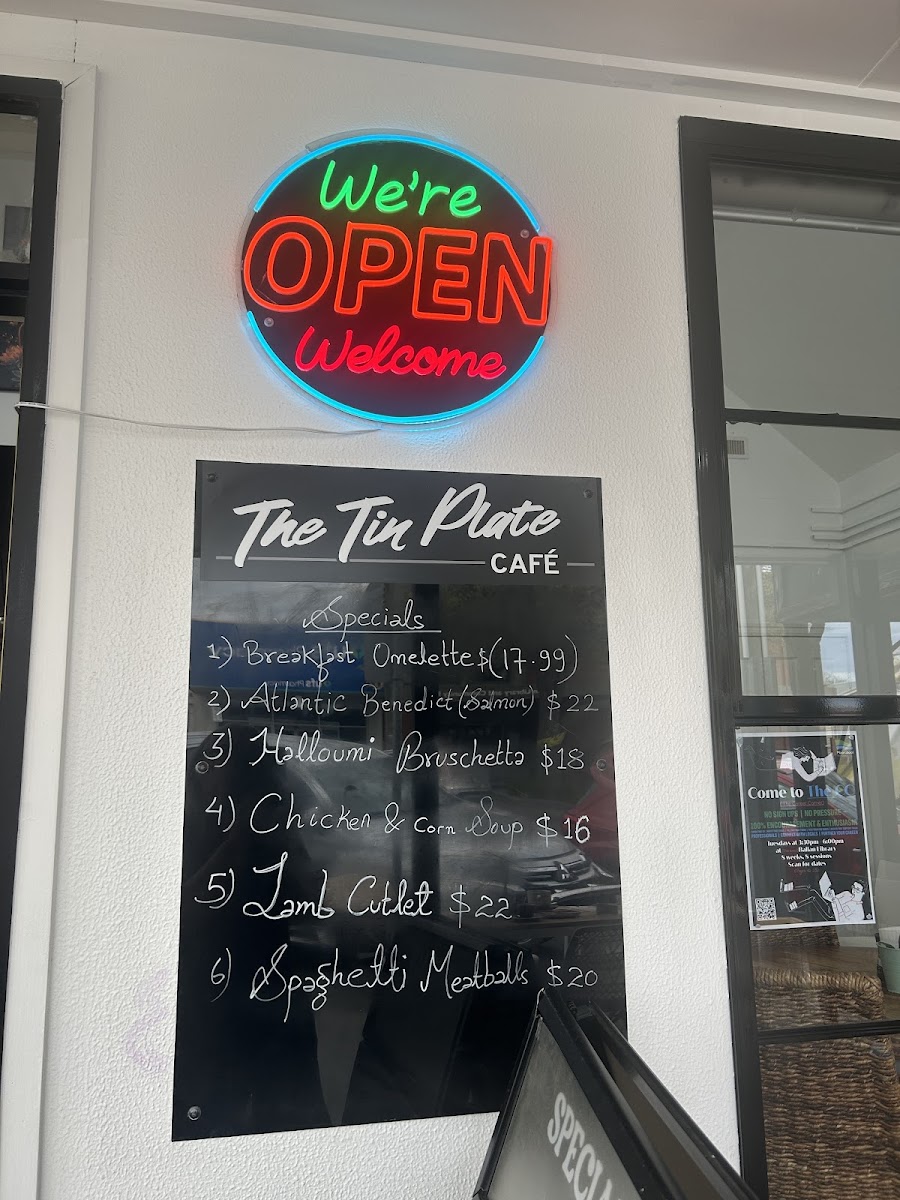 We're
OPEN
Welcome
The Tin Plate
CAFÉ
Specials
1) Breakfast Omelette $(17.99)
2) Atlantic Benedict (Salmon) $22
3) Halloumi Bruschetta $18
4) Chicken & Corn Soup $16
5) Lamb Cutlet $22
6) Spaghetti Meatballs $20
Come to The
NO SIGN UPS | NO PRESSURE
100% ENCOURAGEMENT & ENTHUSIASM
Tuesdays at 3:30pm - 6:00pm
at Ballan Library
8 weeks, 8 sessions
Scan for dates